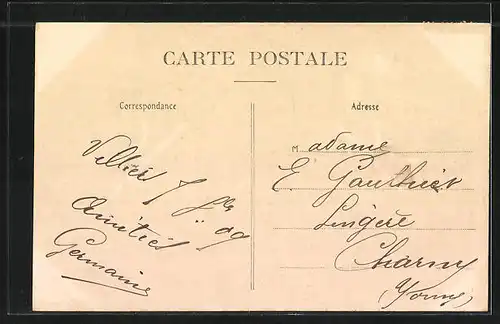 CARTE POSTALE
Correspondance
Adresse
Madame
E. Gauthier
Lingère
Charny
(Yonne)
Villiers 7 09
Amitiés
Germaine